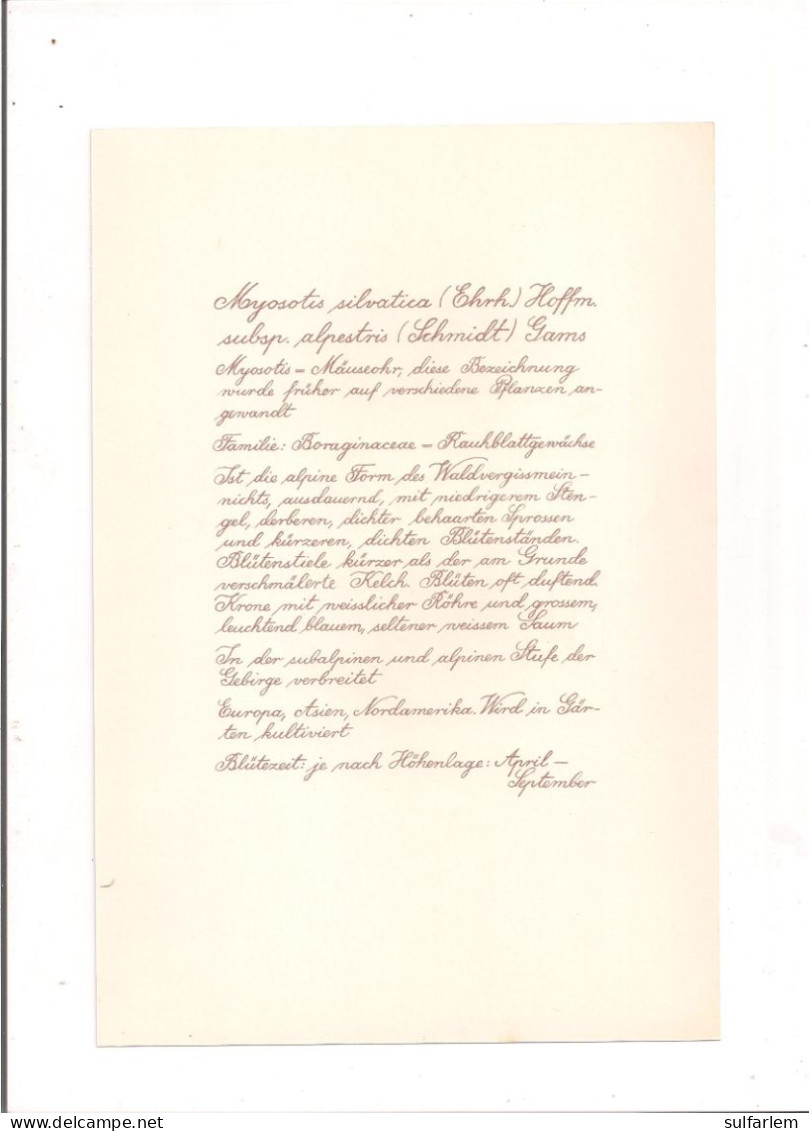 Myosotis silvatica (Ehrh.) Hoffm.
subsp. alpestris (Schmidt) Gams
Myosotis = Mäuseohr, diese Bezeichnung
wurde früher auf verschiedene Pflanzen an-
gewandt
Familie: Boraginaceae = Rauhblattgewächse
Ist die alpine Form des Waldvergissmein-
nichts, ausdauernd, mit niedrigerem Sten-
gel, derberen, dichter behaarten Sprossen
und kürzeren, dichten Blütenständen.
Blütenstiele kürzer als der am Grunde
verschmälerte Kelch. Blüten oft duftend.
Krone mit weisslicher Röhre und grossem,
leuchtend blauem, seltener weissem Saum
In der subalpinen und alpinen Stufe der
Gebirge verbreitet
Europa, Asien, Nordamerika. Wird in Gär-
ten kultiviert
Blütezeit: je nach Höhenlage: April –
September
www.delcampe.net
sulfarlem